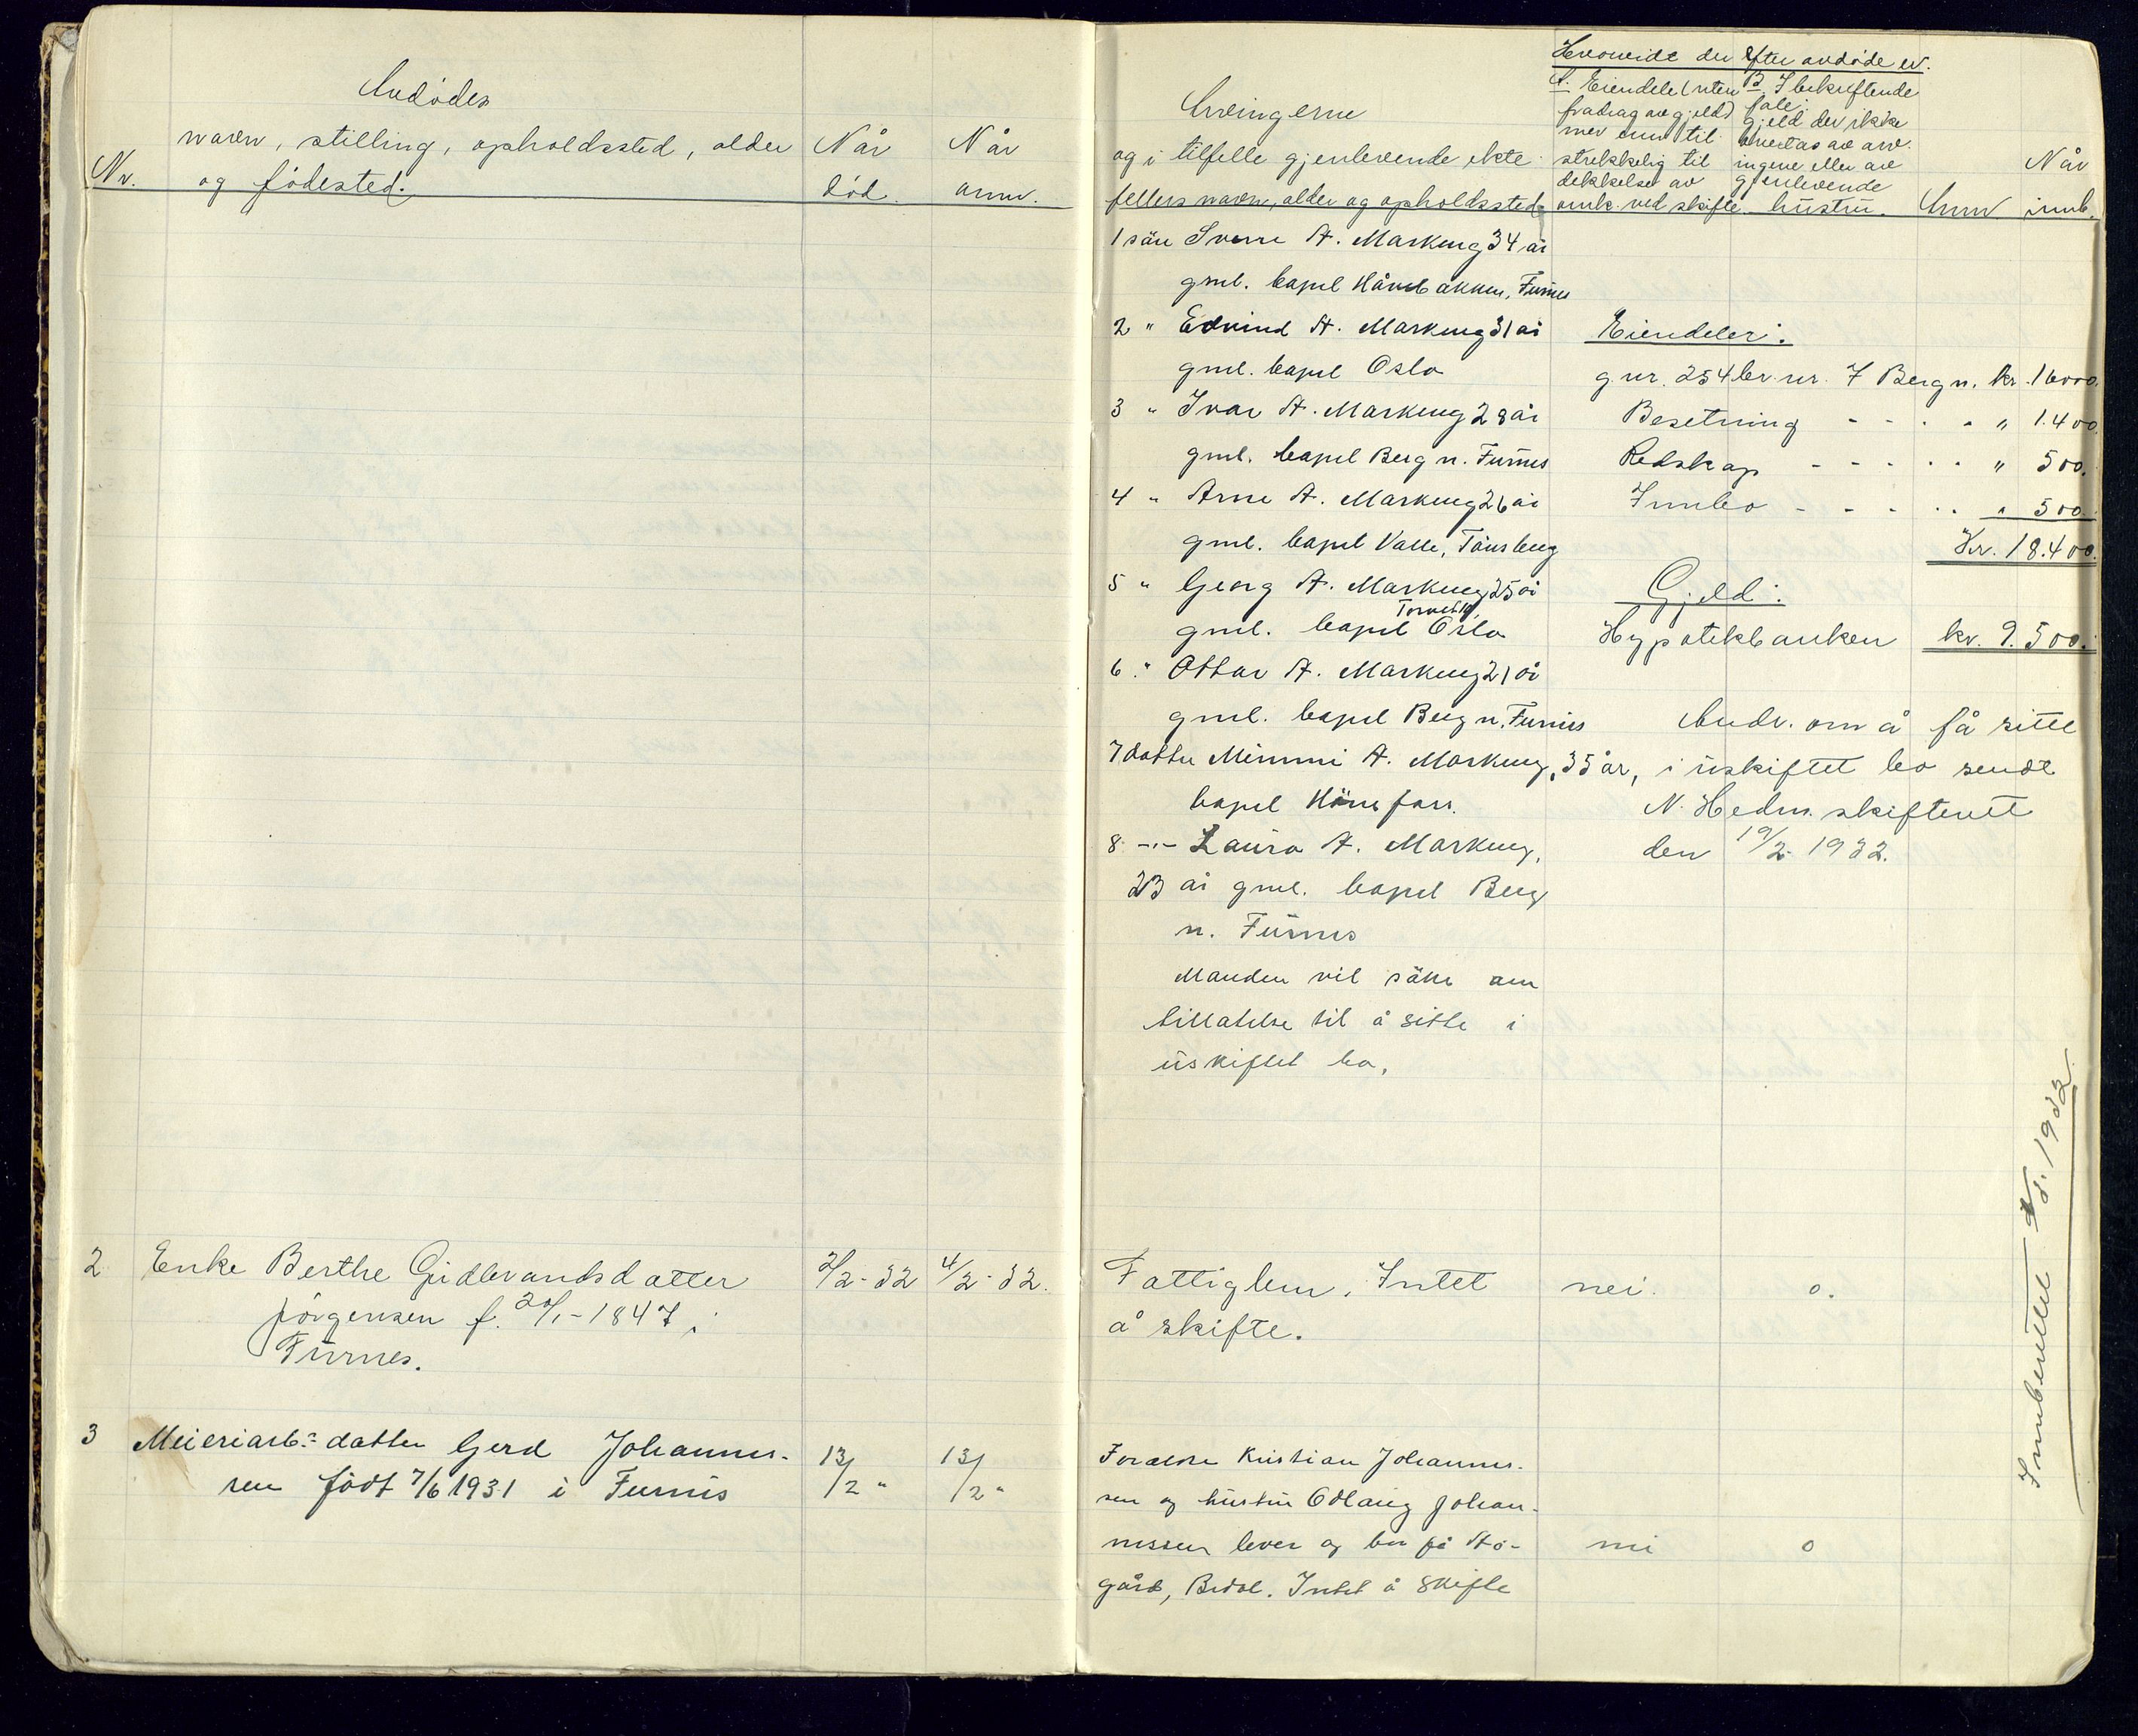 Avdødes
Nr. navn, stilling, opholdssted, alder og fødested.
Når død.
Når anm.
2 Enke Berthe Gudbrandsdatter 2/2-32 4/2-32.
Jörgensen f. 20/1-1847 i
Furnes.
3 Meieriarb.s datter Gerd Johannes- 13/2 " 13/2 "
sen född 7/6 1931 i Furnes
Arvingerne
og i tilfelle gjenlevende ekte-
fellers navn, alder og opholdssted
Hvorvidt der efter avdøde er.
A. Eiendele (uten
fradrag av gjeld)
mer enn til-
strekkelig til
dekkelse av
omk. ved skifte.
B. I bekreftende
fall:
Gjeld der ikke
overtas av arv-
ingene eller av
gjenlevende
hustru.
Anm
Når
innb.
1 sön Sverre A. Markeng 34 år
gml. bopel Håvebakken, Furnes
2 " Edvind A. Markeng 31 år
gml. bopel Oslo
3 " Ivar A. Markeng 28 år
gml. bopel Berg n. Furnes
4 " Arne A. Markeng 26 år
gml. bopel Valle, Tönsberg
5 " Georg A. Markeng 25 år
gml. bopel Oslo
6 " Ottar A. Markeng 21 år
gml. bopel Berg n. Furnes
7 datter Mimmi A. Markeng, 35 år,
bopel Hönefoss.
8 -"- Laura A. Markeng,
23 år gml. bopel Berg
n. Furnes
Manden vil söke om
tillatelse til å sitte i
uskiftet bo.
Eiendeler:
g.nr. 254 br.nr. 7 Berg n. kr. 16000.
Besetning - - - - " 1.400.
Redskap - - - - - " 500.
Innbo - - - - - " 500.
Kr. 18.400.
Gjeld:
Hypotekbanken kr. 9.500.
Andr. om å få sitte
i uskiftet bo sendt
N. Hedm. skifterett
den 19/2 1932.
Fattiglem. Intet nei. 0.
å skifte.
Foreldre Kristian Johannes-
sen og hustru Odlaug Johan-
nessen lever og bor på Sto- nei 0
gård, Brdal. Intet å skifte
Innberettet 1932